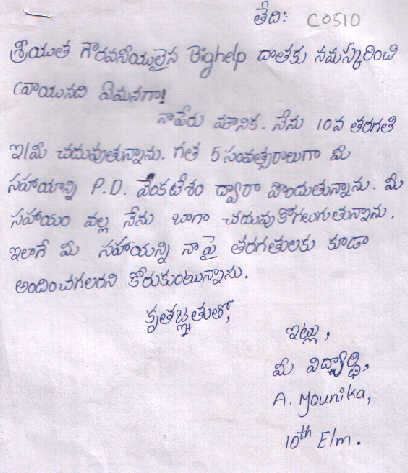 తేది: C0510
శ్రీయుత గౌరవనీయులైన Bighelp దాతకు నమస్కరించి
వ్రాయునది ఏమనగా!
నాపేరు మౌనిక. నేను 10వ తరగతి
ఇ/మీ చదువుతున్నాను. గత 5 సంవత్సరాలుగా మీ
సహాయాన్ని P.D. వెంకటేశం ద్వారా పొందుతున్నాను. మీ
సహాయం వల్ల నేను బాగా చదువుకోగలుగుతున్నాను.
ఇలాగే మీ సహాయన్ని నా పై తరగతులకు కూడా
అందించగలరని కోరుకుంటున్నాను.
కృతజ్ఞతతో,
ఇట్లు,
మీ విద్యార్థి,
A. Mounika,
10th E/m.